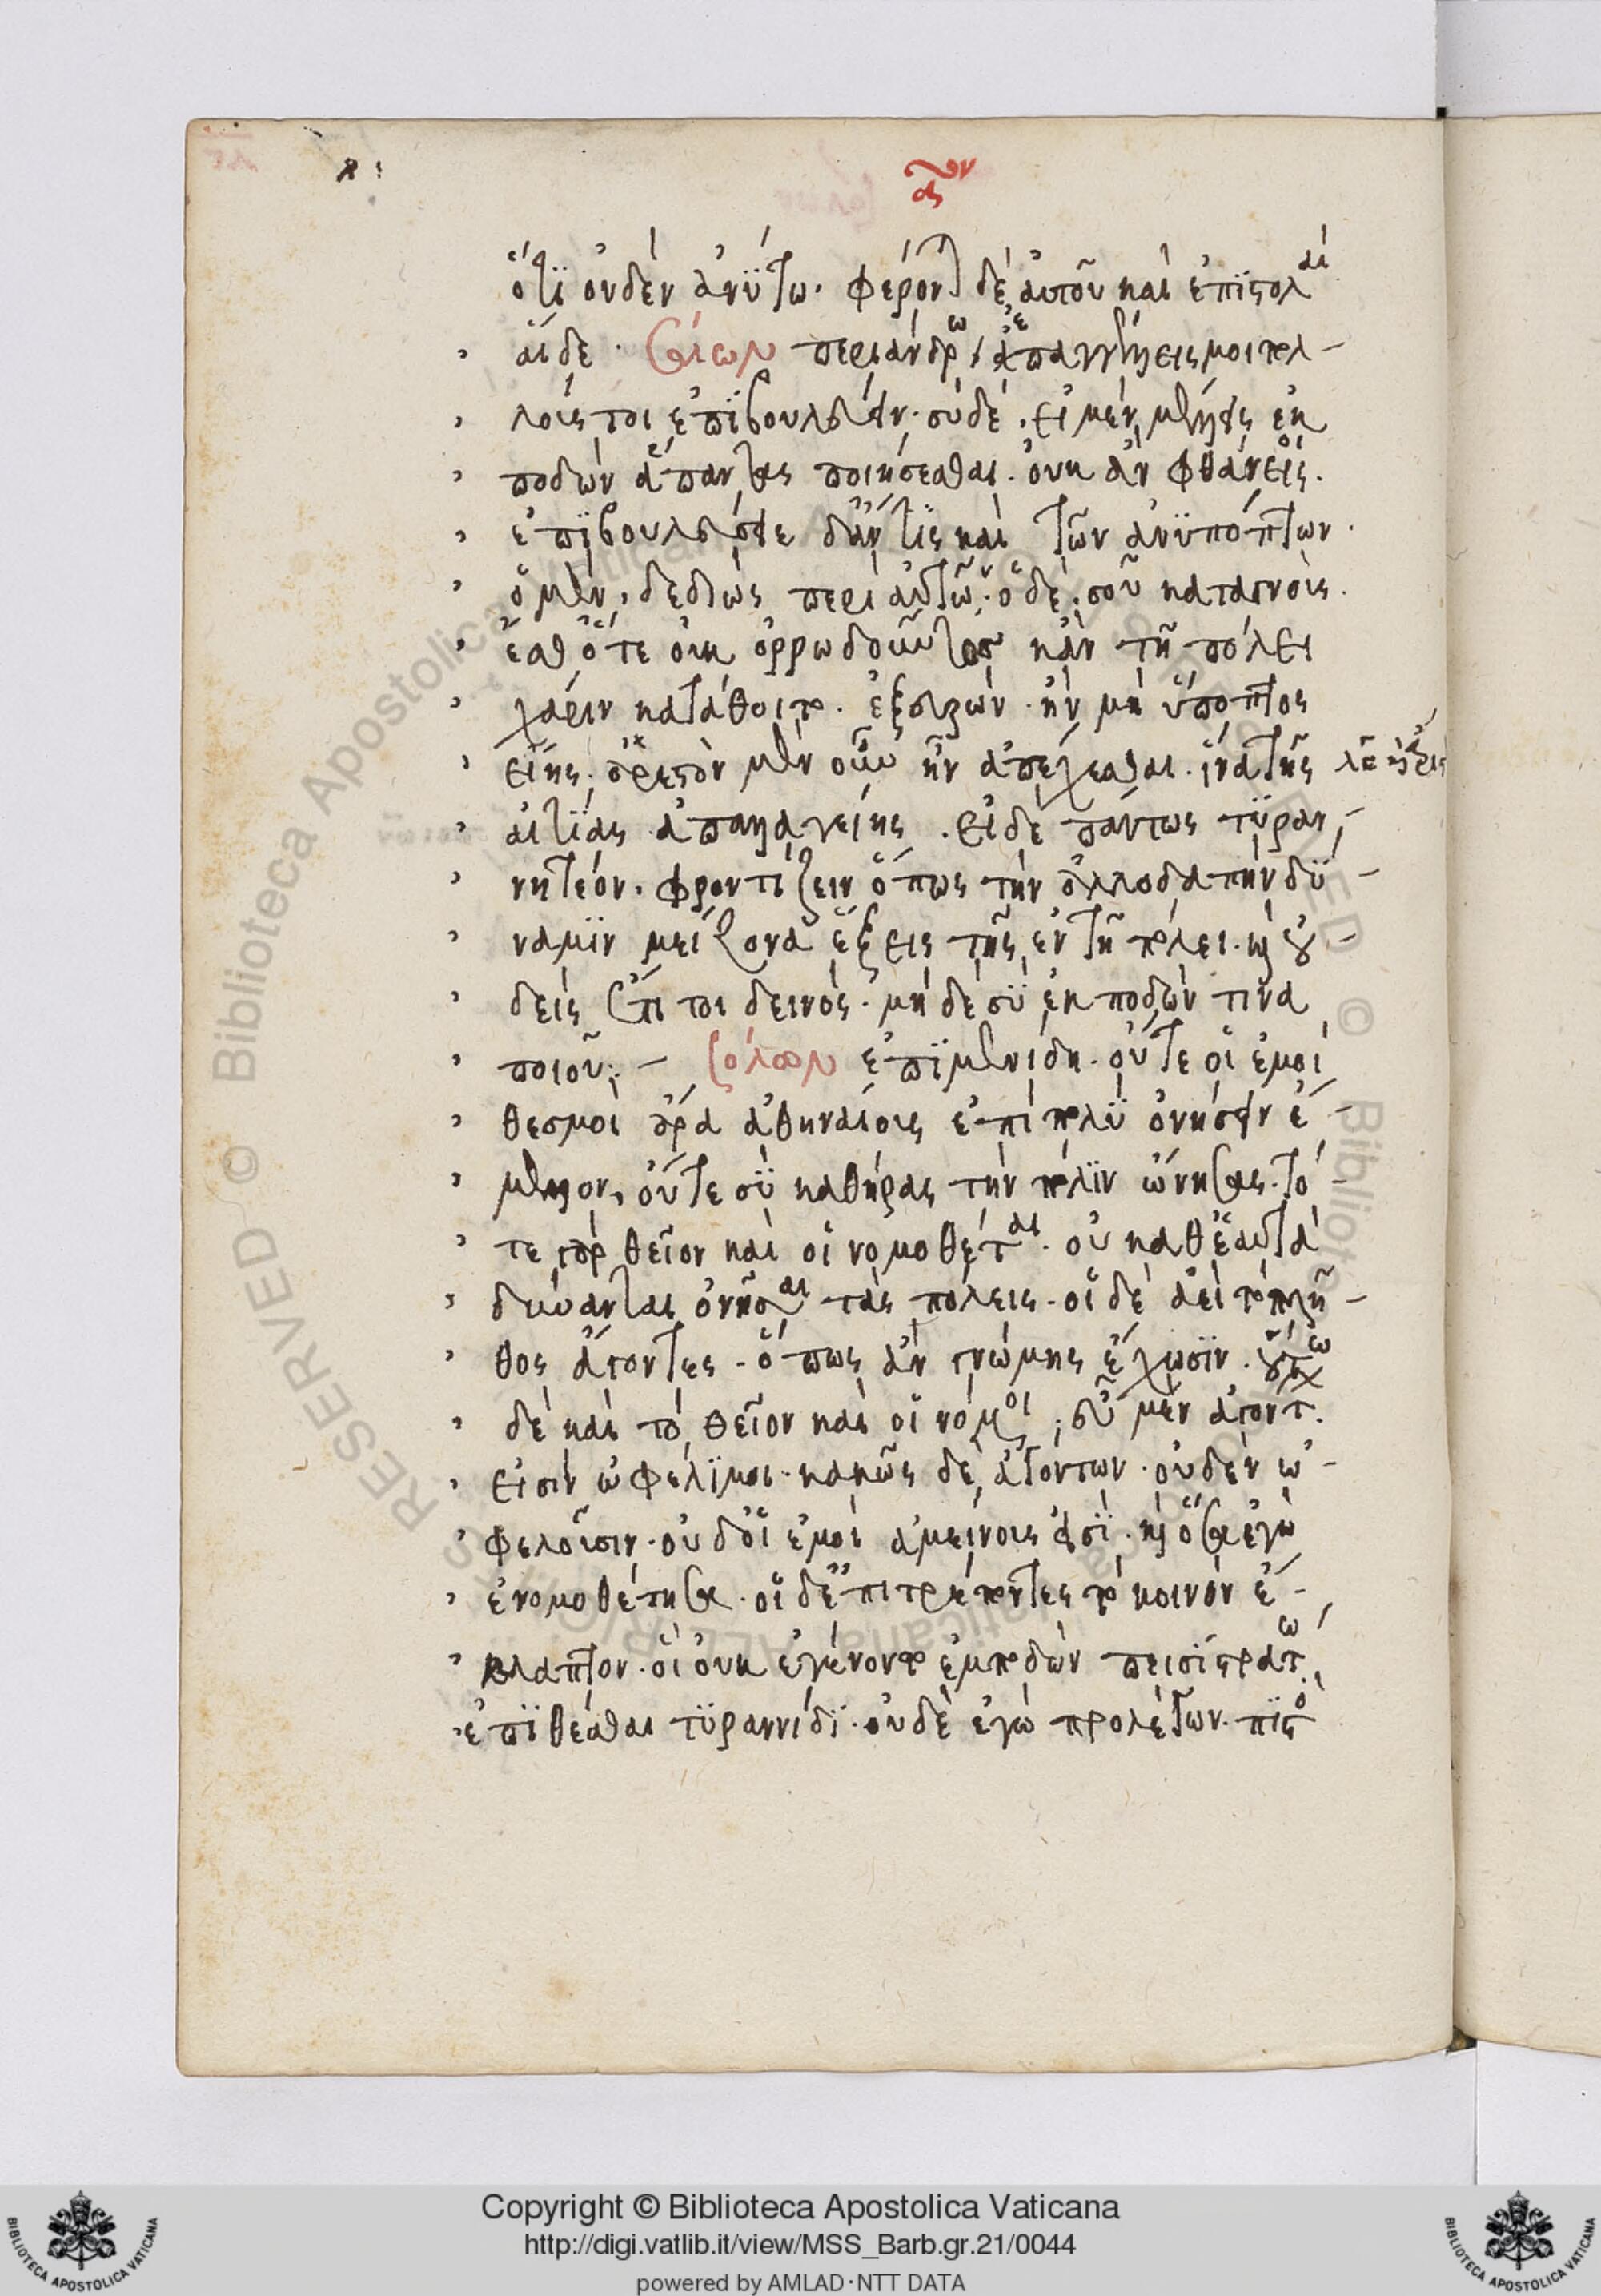 ὅτϊ οὐδὲν ἀνΰτω. φέρονται δὲ αὐτοῦ καὶ ἐπϊστολαὶ
αἵδε. Σόλων περιάνδρω. ἐπαγγέλλεις μοι πολ-
λούς τοι ἐπϊβουλεύειν. σὺ δέ. εἰ μὲν μέλλεις ἐκ
ποδὼν ἅπαντας ποιήσεσθαι. οὐκ ἂν φθάνοις.
ἐπϊβουλεύσειε δἄν τϊς καὶ τῶν ἀνϋπόπτων.
ὁ μὲν, δεδιὼς περὶ αὑτῶ. ὁ δὲ. σοῦ καταγνούς.
ἔσθ ὅτε οὐκ ὀρρωδοῦντος κἂν τῆ πόλει
χάριν κατάθοιτο. ἐξευρών. ἢν μὴ ὕποπτος
εἴης. ἄριστον μὲν οὖν ἦν ἀπέχεσθαι. ἵνα τῆς
αἰτϊας ἀπαλλαγείης. εἰ δὲ πάντως τϋραν-
νητέον. φροντίζειν ὅπως τὴν ἀλλοδαπὴν δϋ-
ναμϊν μείζονα ἕξεις τῆς ἐν τῆ πόλει. καὶ οὐ-
δεὶς ἔτι τοι δεινός. μὴ δὲ σϋ ἐκ ποδών τινα
ποιοῦ: - Σόλων ἐπϊμενίδη. οὔτε οἱ ἐμοὶ
θεσμοὶ ἄρα ἀθηναίοις ἐπὶ πολϋ ὀνήσειν ἔ-
μελλον, οὔτε σϋ καθήρας τὴν πόλϊν ὤνησας. τό
τε γὰρ θεῖον καὶ οἱ νομοθέται. οὐ καθ ἑαυτὰ
δύνανται ὀνῆσαι τὰς πόλεις. οἱ δὲ ἀεὶ τὸ πλῆ-
θος ἄγοντες. ὅπως ἂν γνώμης ἔχωσϊν. οὕτω
δὲ καὶ τὸ θεῖον καὶ οἱ νόμοι, εὖ μὲν ἀγόντ.
εἰσὶν ὠφέλϊμοι. κακῶς δὲ ἀγόντων. οὐδὲν ὠ-
φελοῦσιν. οὐδ οἱ ἐμοὶ ἀμείνους εἰσϊ. καὶ ὅσα ἐγὼ
ἐνομοθέτησα. οἱ δ ἐπιτρέποντες τὸ κοινὸν ἔ-
βλαπτον. οἳ οὐκ ἐγένοντο ἐμποδὼν πεισϊστράτω
ἐπϊθέσθαι τϋραννίδϊ. οὐδὲ ἐγὼ προλέγων. πϊστὸ